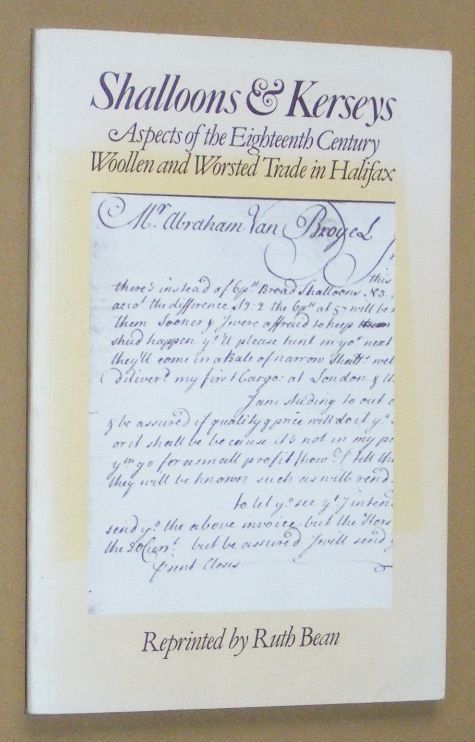 Shalloons & Kerseys
Aspects of the Eighteenth Century
Woollen and Worsted Trade in Halifax
Mr. Abraham Van Broyel
this
there's instead of 6ps Broad Shalloons
the difference the 6ps at 57 will be
them sooner & I were affread to keep
shud happen yo'll please hint in yor next
they'll come in a Bale of narrow
Deliver'd my first Cargo: at London &
I am studing to
& be assured if quality & price will do it yo
or it shall be because it's not in my po
ym go for a small profit
they will be known such as will rend
to let yo see yt I inten
send yo the above invoice but the
the 20 Curr.t but be assured I will send
Present Closes
Reprinted by Ruth Bean